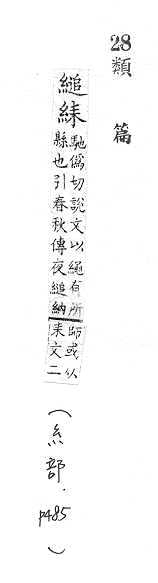 28 類篇
縋
馳偽切說文以繩有所
縣也引春秋傳夜縋納
師或从
文二
(糸部.p485)